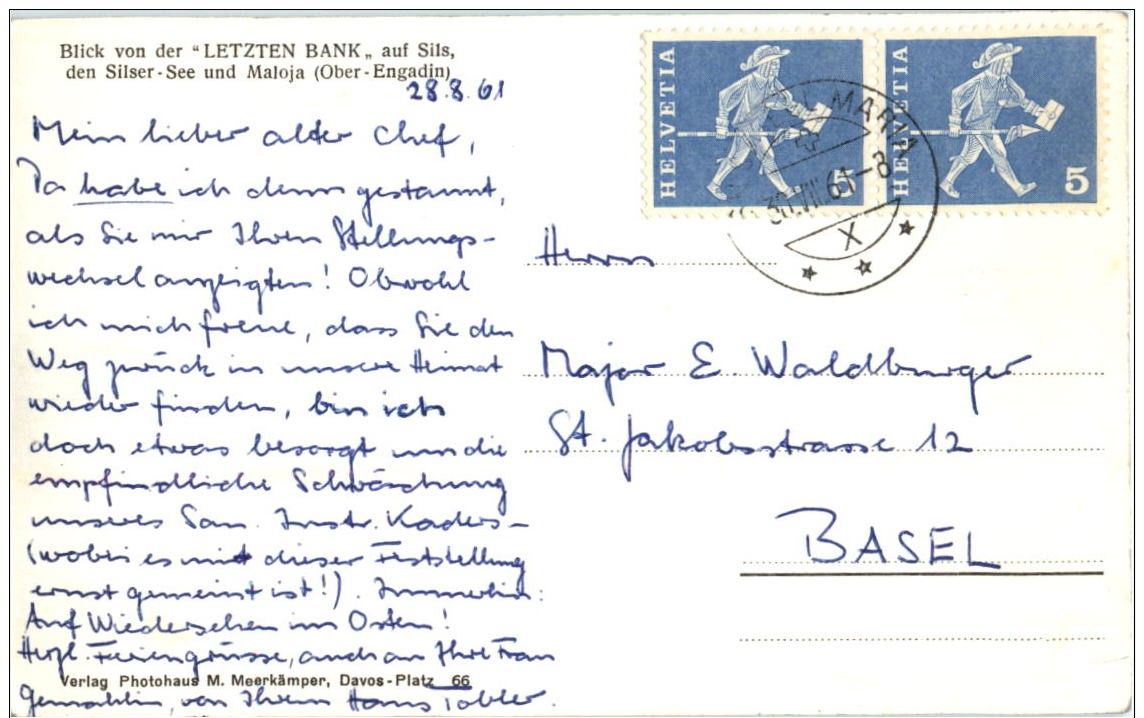 Blick von der "LETZTEN BANK„ auf Sils,
den Silser-See und Maloja (Ober-Engadin)
28.8.61
Mein lieber alter Chef,
Da habe ich denn gestaunt,
als Sie mir Ihren Stellungs-
wechsel anzeigten! Obwohl
ich mich freue, dass Sie den
Weg zurück in unsere Heimat
wieder finden, bin ich
doch etwas besorgt um die
empfindliche Schwächung
unseres San. Instr. Kaders -
(wobei es mit dieser Feststellung
ernst gemeint ist!). Immerhin:
Auf Wiedersehen im Osten!
Herzl. Feriengrüsse, auch an Ihre Frau
Gemahlin, von Ihrem Hans Tobler.
Verlag Photohaus M. Meerkämper, Davos-Platz 66
HELVETIA 5
HELVETIA 5
MARIA
30.VIII.61-8
X
Herrn
Major E. Waldburger
St. Jakobsstrasse 12
BASEL